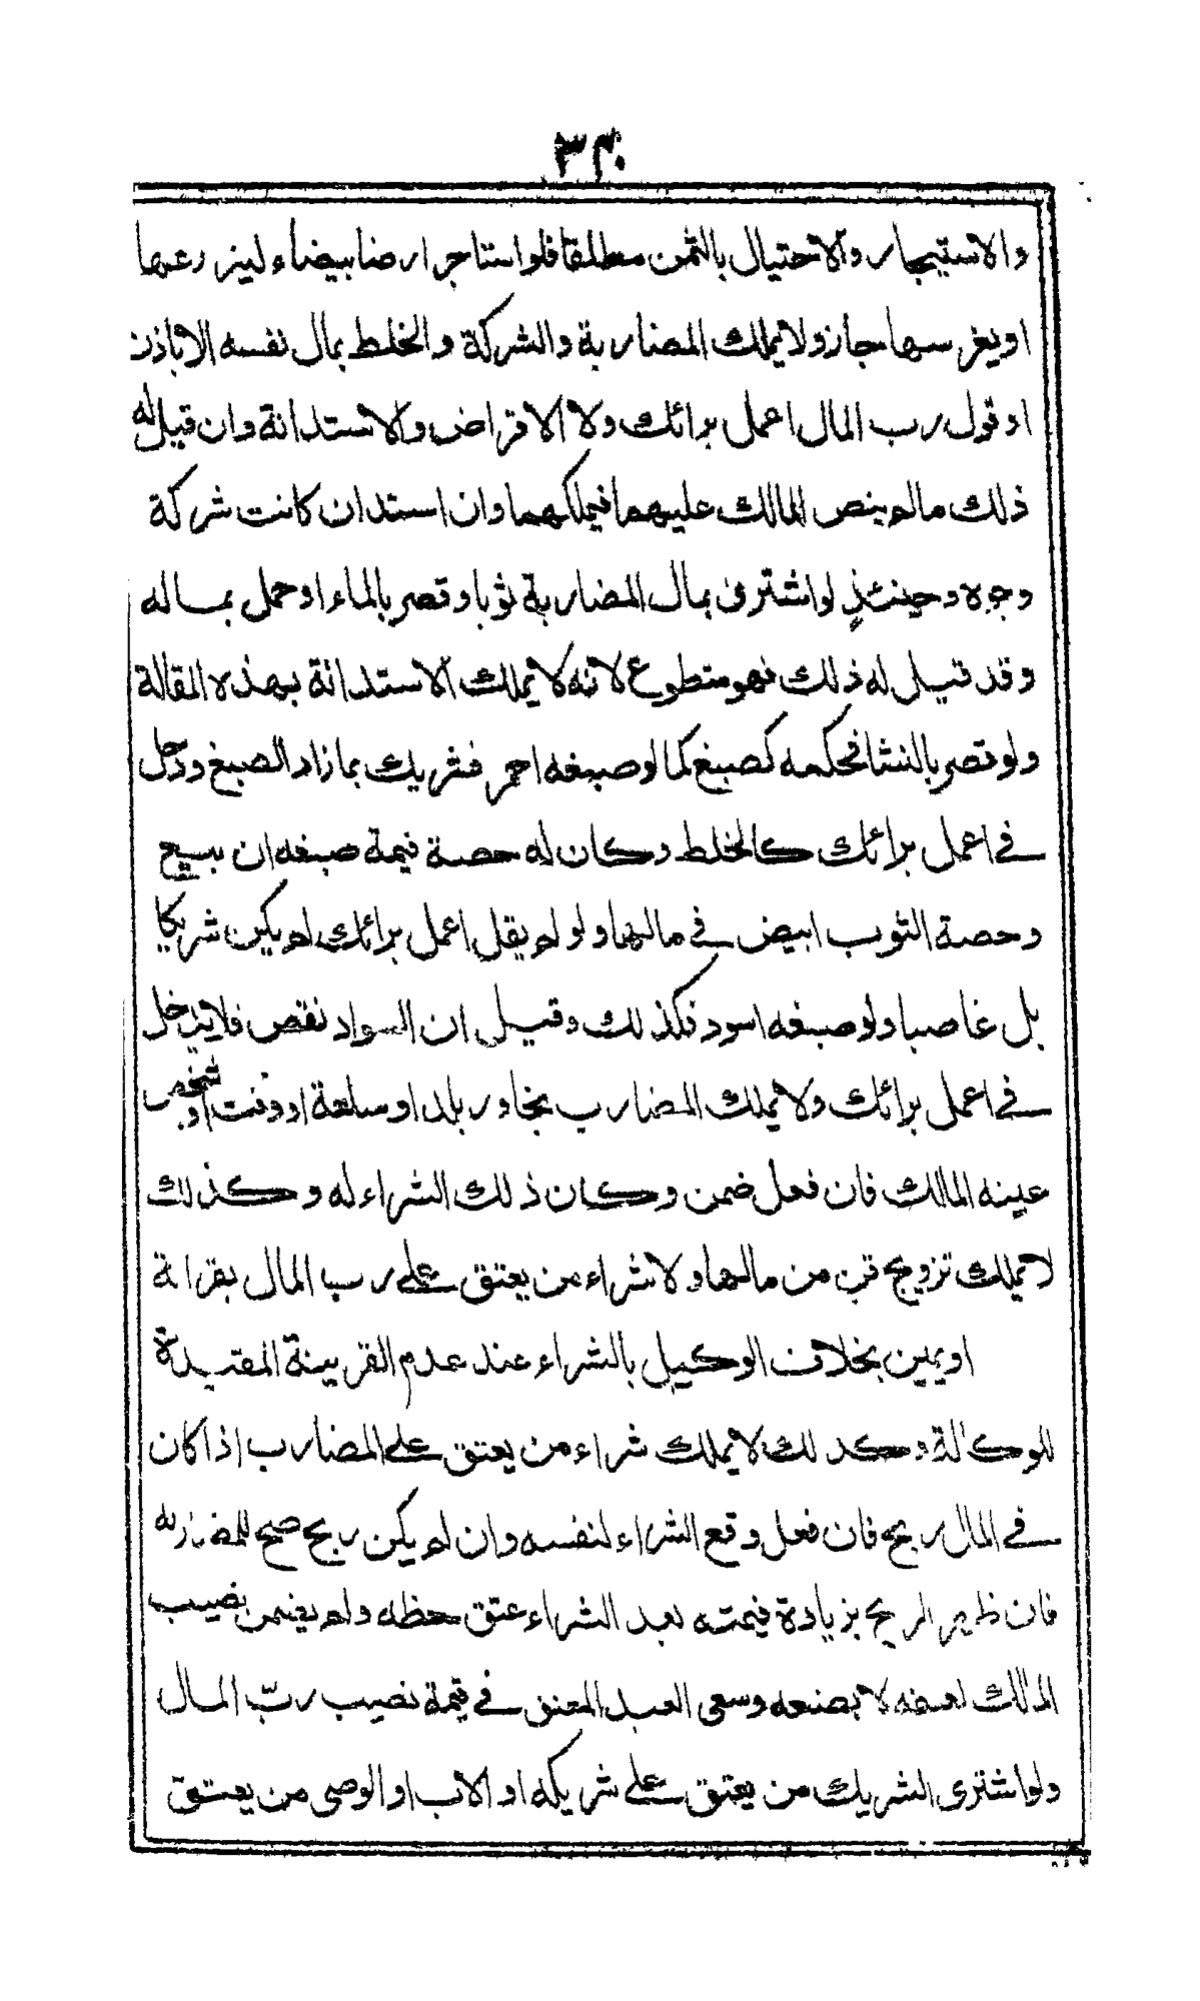 ٣٤٠
والاستيجار والاحتيال بالثمن مطلقا فلو استاجر ارضا بيضاء ليزرعها
او يغرسها جاز ولا يملك المضاربة والشركة والخلط بمال نفسه الا باذن
او قول رب المال اعمل برائك ولا الاقراض والاستدانة وان قيل له
ذلك مالم ينص المالك عليهما فيملكهما وان استدان كانت شركة
وجوه وحينئذ لو اشترى بمال المضاربة ثوبا وقصر بالماء او حمل بماله
وقد قيل له ذلك فهو متطوع لانه لا يملك الاستدانة بهذه المقالة
ولو قصر بالنشا فحكمه كصبغ كما لو صبغه احمر فشريك بما زاد الصبغ ودخل
في اعمل برائك كالخلط وكان له حصة قيمة صبغه ان بيع
وحصة الثوب ابيض في مالها ولو لم يقل اعمل برائك لم يكن شريكا
بل غاصبا ولو صبغه اسود فكذلك وقيل ان السواد نقص فلا يدخل
في اعمل برائك ولا يملك المضارب تجاوز بلد او سلعة او وقت او شخص
عينه المالك فان فعل ضمن وكان ذلك الشراء له وكذلك
لا يملك تزويج قن من مالها ولا شراء من يعتق على رب المال بقرابة
او يمين بخلاف الوكيل بالشراء عند عدم القرينة المقيدة
للوكالة وكذلك لا يملك شراء من يعتق على المضارب اذا كان
في المال ربح فان فعل وقع الشراء لنفسه وان لم يكن ربح صح للمضاربة
فان ظهر الربح بزيادة قيمته بعد الشراء عتق حظه ولم يضمن نصيب
المالك لعتقه لا بصنعه وسعى العبد المعتق في قيمة نصيب ربّ المال
ولو اشترى الشريك من يعتق على شريكه او الاب او الوصى من يعتق